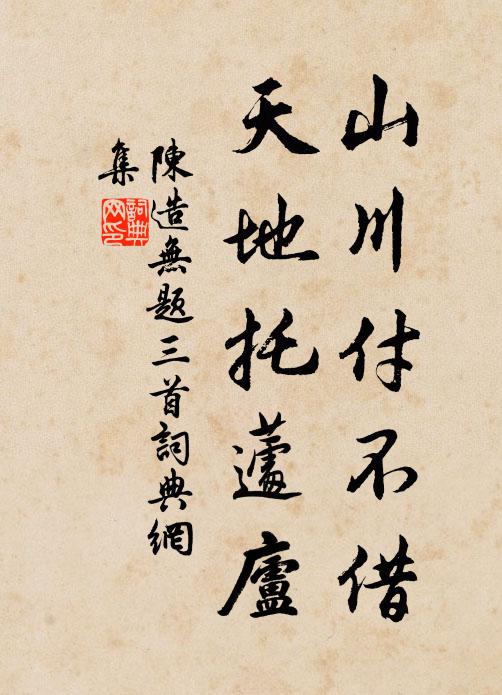 山川付不借
天地托蘧廬
陳造無題三首詞典網
集
詞典網印